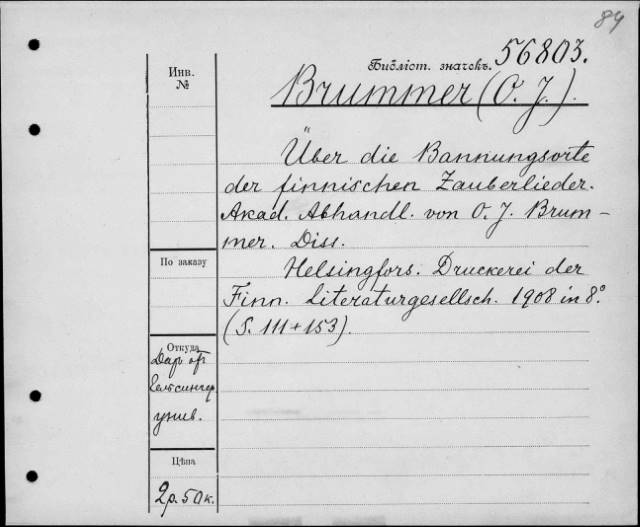 84
Библіот. значекъ. 56803.
Инв.
№
Brummer (O. J.).
Über die Bannungsorte
der finnischen Zauberlieder.
Akad. Abhandl. von O. J. Brum-
mer. Diss.
По заказу
Helsingfors. Druckerei der
Finn. Literaturgesellsch. 1908 in 8°.
(S. III+153).
Откуда
Даръ отъ
Гельсингфор.
унив.
Цѣна
2р. 50к.